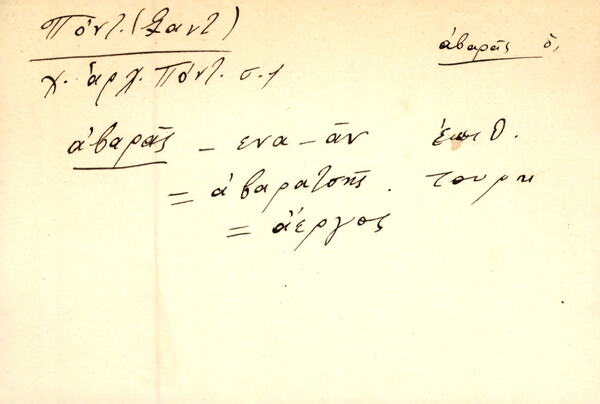 Πόντ. (Σαντ)
ἀβαρᾶς ὁ,
γ. ἀρχ. Πόντ. σ. 1
ἀβαρᾶς - ενα - ᾶν ἐπιθ.
= ἀβαρατσῆς. τουρκ
= ἄεργος